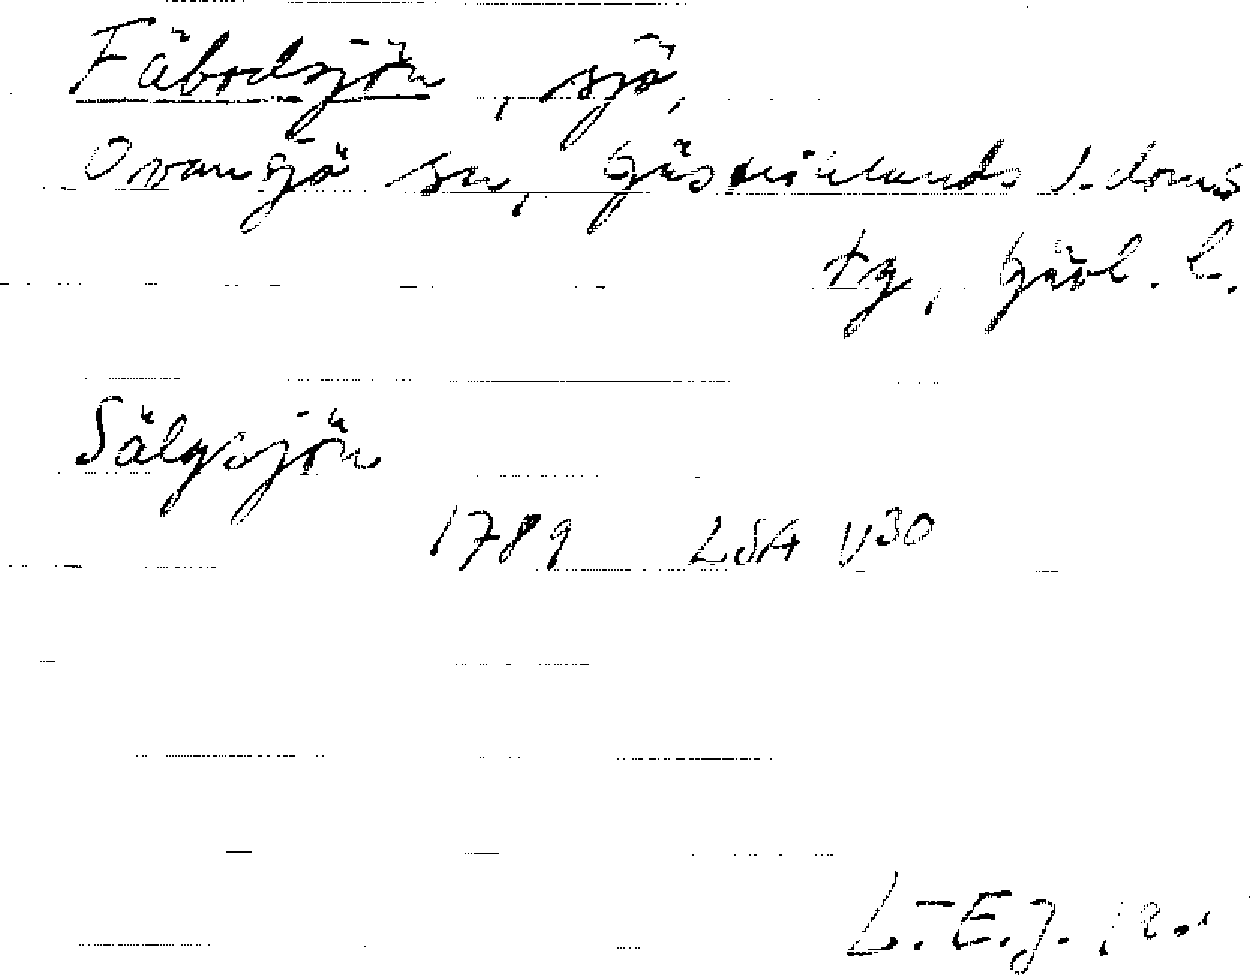 Fäbodsjön, sjö,
Ovansjö sn, Gästriklands l. doms
tg, Gävl. l.
Sälgsjön
1789 LSA V30
L.-E.J.